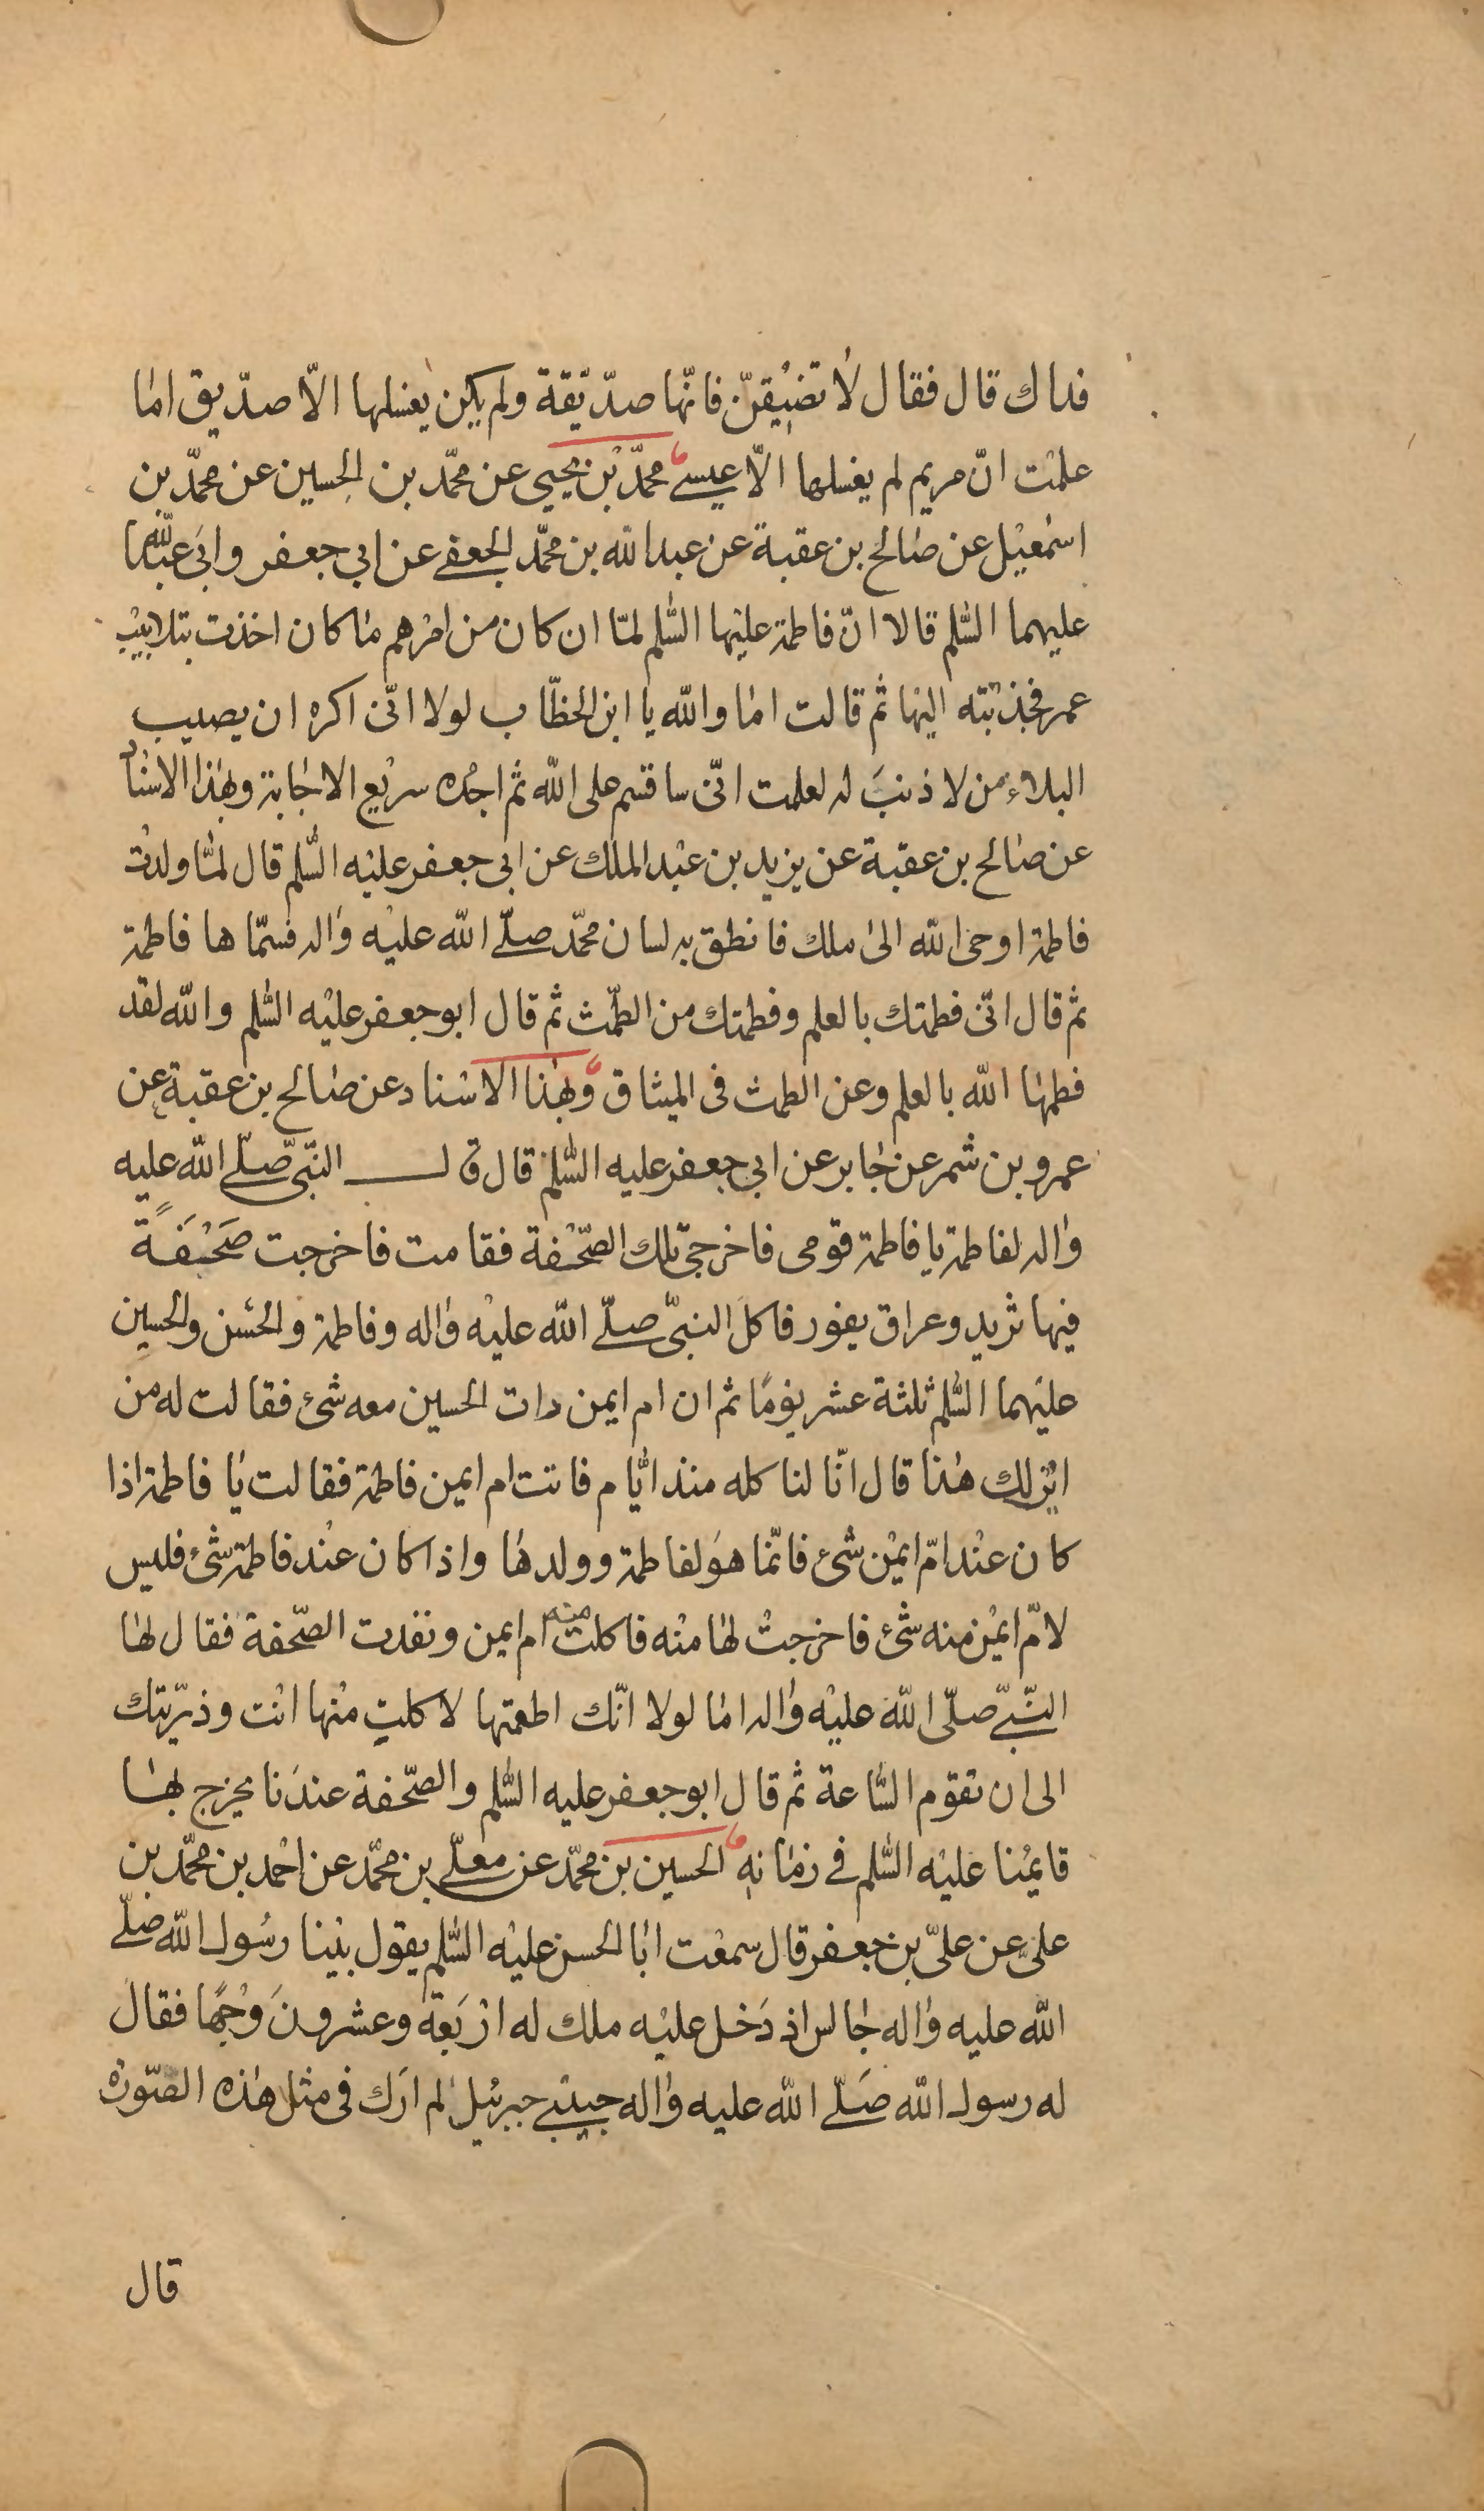 فداك قال فقال لا تضيقنّ فانّها صدّيقة ولم يكن يغسلها الّا صدّيق اما
علمت انّ مريم لم يغسلها الّا عيسى محمّد بن يحيى عن محمّد بن الحسين عن محمّد بن
اسمعيل عن صالح بن عقبة عن عبدالله بن محمّد الجعفى عن ابى جعفر وابى عبدالله
عليهما السّلم قالا انّ فاطمة عليها السّلم لمّا ان كان من امرهم ما كان اخذت بتلابيب
عمر فجذبته اليها ثم قالت اما والله يا ابن الخطّاب لولا انّى اكره ان يصيب
البلاء من لا ذنب له لعلمت انّى ساقسم على الله ثم اجده سريع الاجابة وبهذا الاسناد
عن صالح بن عقبة عن يزيد بن عبد الملك عن ابى جعفر عليه السّلم قال لمّا ولدت
فاطمة اوحى الله الى ملك فانطق به لسان محمّد صلّى الله عليه واله فسمّاها فاطمة
ثم قال انّى فطمتك بالعلم وفطمتك من الطّمث ثم قال ابو جعفر عليه السّلم والله لقد
فطمها الله بالعلم وعن الطمث فى الميثاق وبهذا الاسناد عن صالح بن عقبة عن
عمرو بن شمر عن جابر عن ابى جعفر عليه السّلم قال قال النّبىّ صلّى الله عليه
واله لفاطمة يا فاطمة قومى فاخرجى تلك الصّحفة فقامت فاخرجت صَحْفَةً
فيها ثريد وعراق يفور فاكل النبىّ صلّى الله عليه واله وفاطمة والحسن والحسين
عليهما السّلم ثلثة عشر يومًا ثم ان ام ايمن رات الحسين معه شئ فقالت له من
اين لك هذا قال انّا لناكله منذ ايّام فاتت ام ايمن فاطمة فقالت يا فاطمة اذا
كان عند امّ ايمن شئ فانّما هو لفاطمة وولدها واذا كان عند فاطمة شئ فليس
لامّ ايمن منه شئ فاخرجت لها منه فاكلت منه ام ايمن ونفدت الصّحفة فقال لها
النّبىّ صلّى الله عليه واله اما لولا انّك اطعمتها لاكلتِ منها انت وذرّيتك
الى ان تقوم السّاعة ثم قال ابو جعفر عليه السّلم والصّحفة عندنا يخرج بها
قايمنا عليه السّلم فى زمانه الحسين بن محمّد عن معلّى بن محمّد عن احمد بن محمّد بن
علىّ عن علىّ بن جعفر قال سمعت ابا الحسن عليه السّلم يقول بينا رسُول الله صلّى
الله عليه واله جالس اذ دَخل عليه ملك له اربَعة وعشرونَ وجهًا فقال
له رسول الله صَلّى الله عليه واله حبيبى جبرئيل لم ارَك فى مثل هذه الصّورة
قال